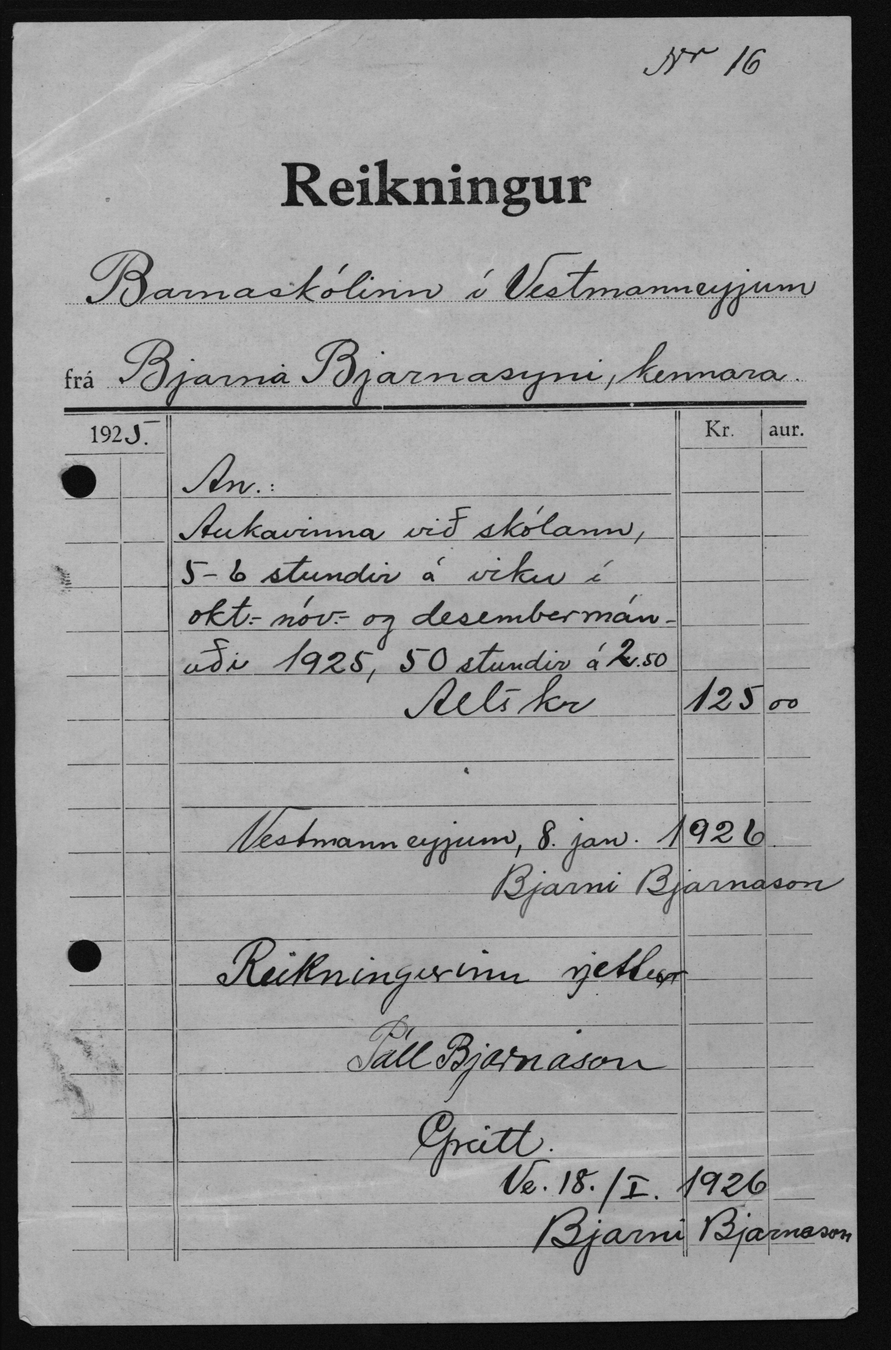 Nr 16
Reikningur
Barnaskólinn í Vestmanneyjum
frá Bjarna Bjarnasyni, kennara.
1925. Kr. aur.
An.:
Aukavinna við skólann,
5-6 stundir á viku í
okt.- nóv.- og desembermán-
uði 1925, 50 stundir á 2.50
Alls kr 125 00
Vestmanneyjum, 8. jan. 1926
Bjarni Bjarnason
Reikningurinn rjettur
Páll Bjarnason
Greitt.
Ve. 18./I. 1926
Bjarni Bjarnason